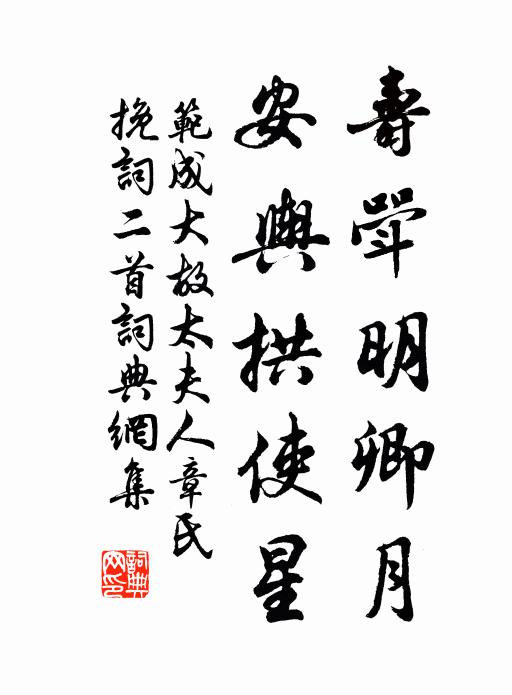 壽斝明卿月
安輿拱使星
範成大故太夫人章氏
挽詞二首詞典網集
詞典網印